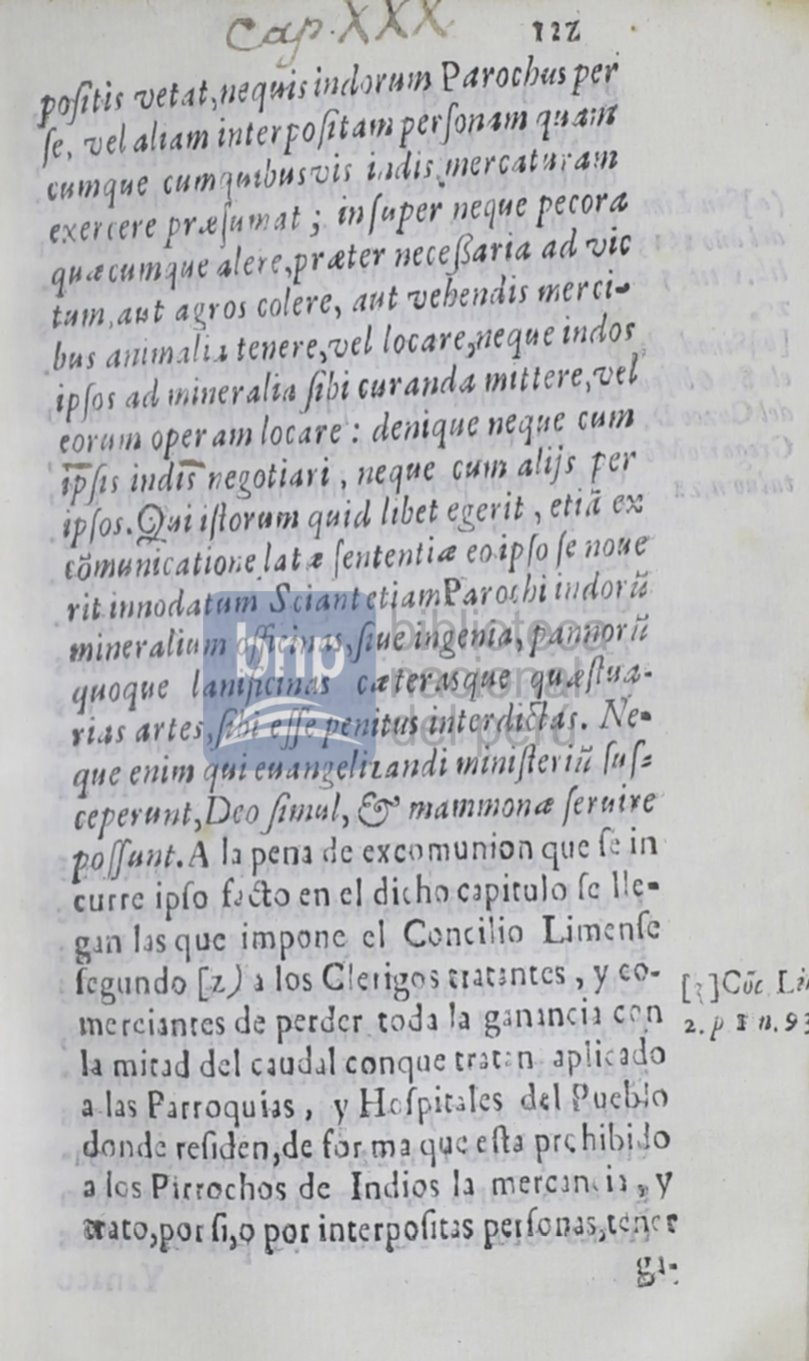 Cap. XXX 122
positis vetat, nequis indorum Parochus per
se, vel aliam interpositam personam quam
cumque cumquibusvis indis, mercaturam
exercere præsumat; insuper neque pecora
quæcumque alere, præter necessaria ad vic
tum, aut agros colere, aut vehendis merci-
bus animalia tenere, vel locare, neque indos
ipsos ad mineralia sibi curanda mittere, vel
eorum operam locare: denique neque cum
ipsis indis negotiari, neque cum alijs per
ipsos. Qui istorum quid libet egerit, etiã ex
cõmunicatione latæ sententiæ eo ipso se noue
rit innodatum Sciant etiam Parochi indorũ
mineralium officinas, siue ingenia, pannorũ
quoque lanificinas cæterasque quæstua-
rias artes, sibi esse penitus interdictas. Ne-
que enim qui euangelizandi ministeriũ sus-
ceperunt, Deo simul, & mammonæ seruire
possunt. A la pena de excomunion que se in
curre ipso facto en el dicho capitulo se lle-
gan las que impone el Concilio Limense
segundo [z) a los Clerigos tratantes, y co-
merciantes de perder toda la ganancia con
la mitad del caudal conque tratan aplicado
a las Parroquias, y Hospitales del Pueblo
donde residen, de forma que esta prohibido
a los Pirrochos de Indios la mercancia, y
trato, por si, o por interpositas personas, tener
ga-
[z] Cõc. Li
2. p 1 n. 93
bnp biblioteca
nacional
del perú